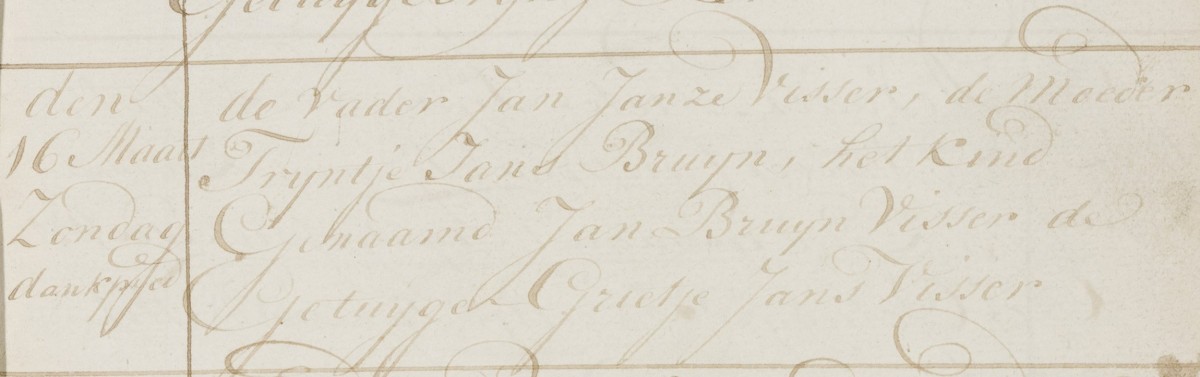 den
16 Maart
Zondag
de vader Jan Janze Visser, de Moeder
Tryntje Jans Bruyn, het kind
Genaamd Jan Bruyn Visser de
Getuyge Grietje Jans Visser